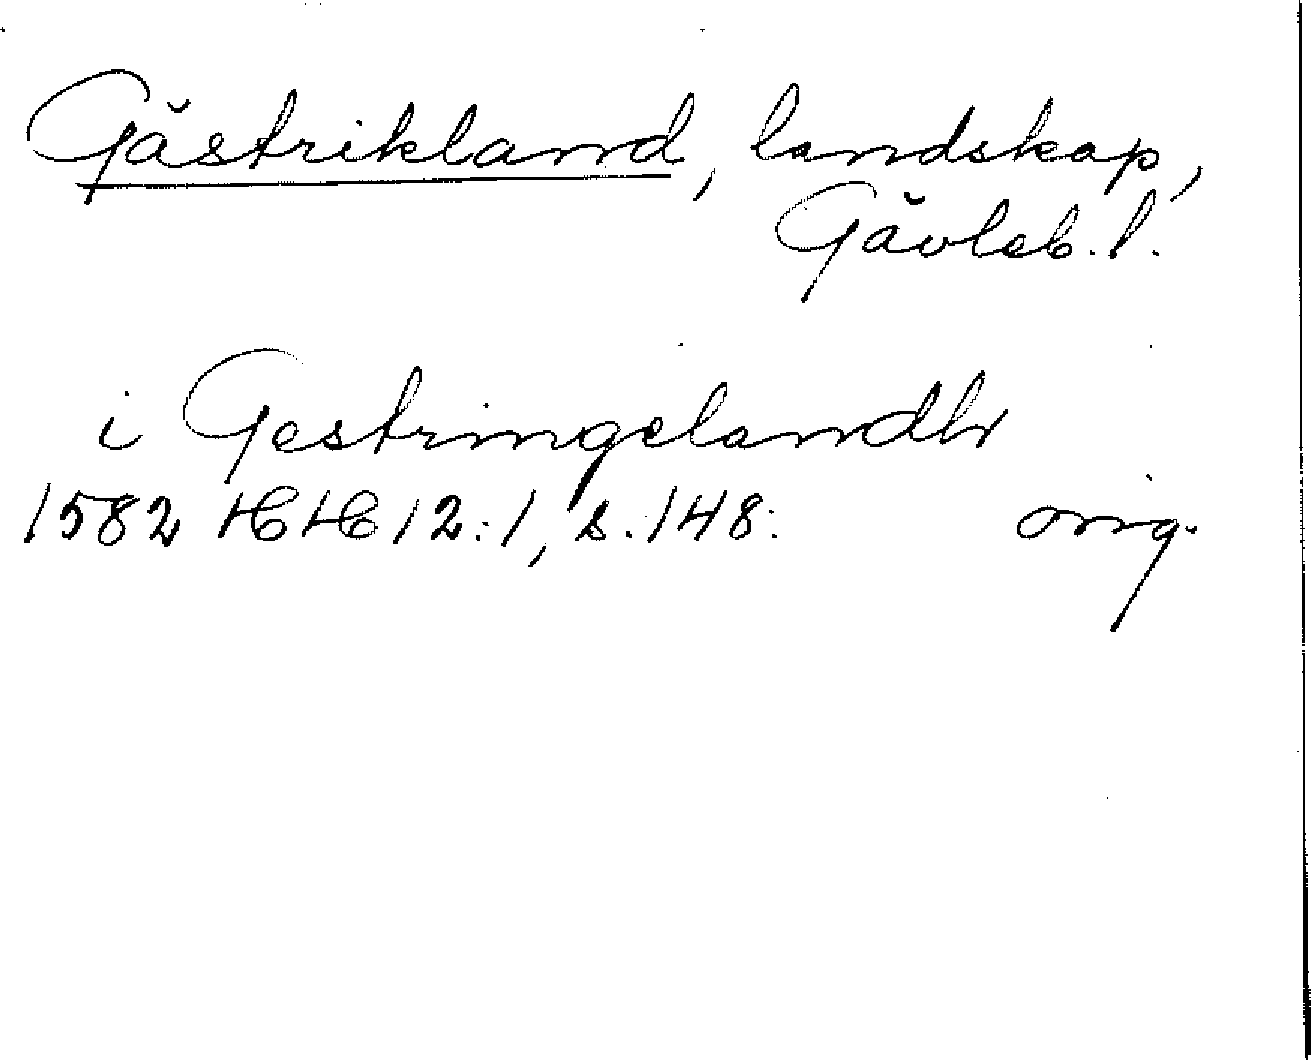 Gästrikland, landskap,
Gävleb. l.
i Gestringelandh
1582 HH 12:1, s. 148. orig.